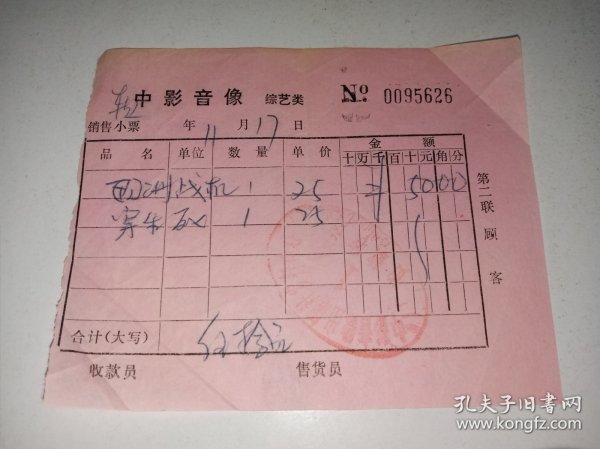 中影音像 综艺类 № 0095626
销售小票 年 11 月 17 日
品名 单位 数量 单价 金额
十 万 千 百 十 元 角 分
战机 1 25 5000
1 25
合计(大写) 伍拾元
收款员 售货员
第二联 顾客
孔夫子旧书网
www.kongfz.com